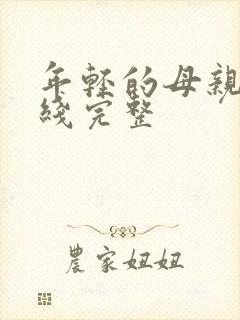 年轻的母亲
线完整
農家妞妞